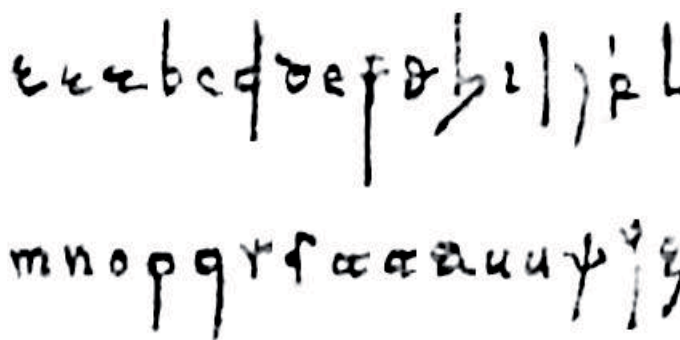 a a a b c d d e f g h i l j k l
m n o p q r s t t t u u y y z